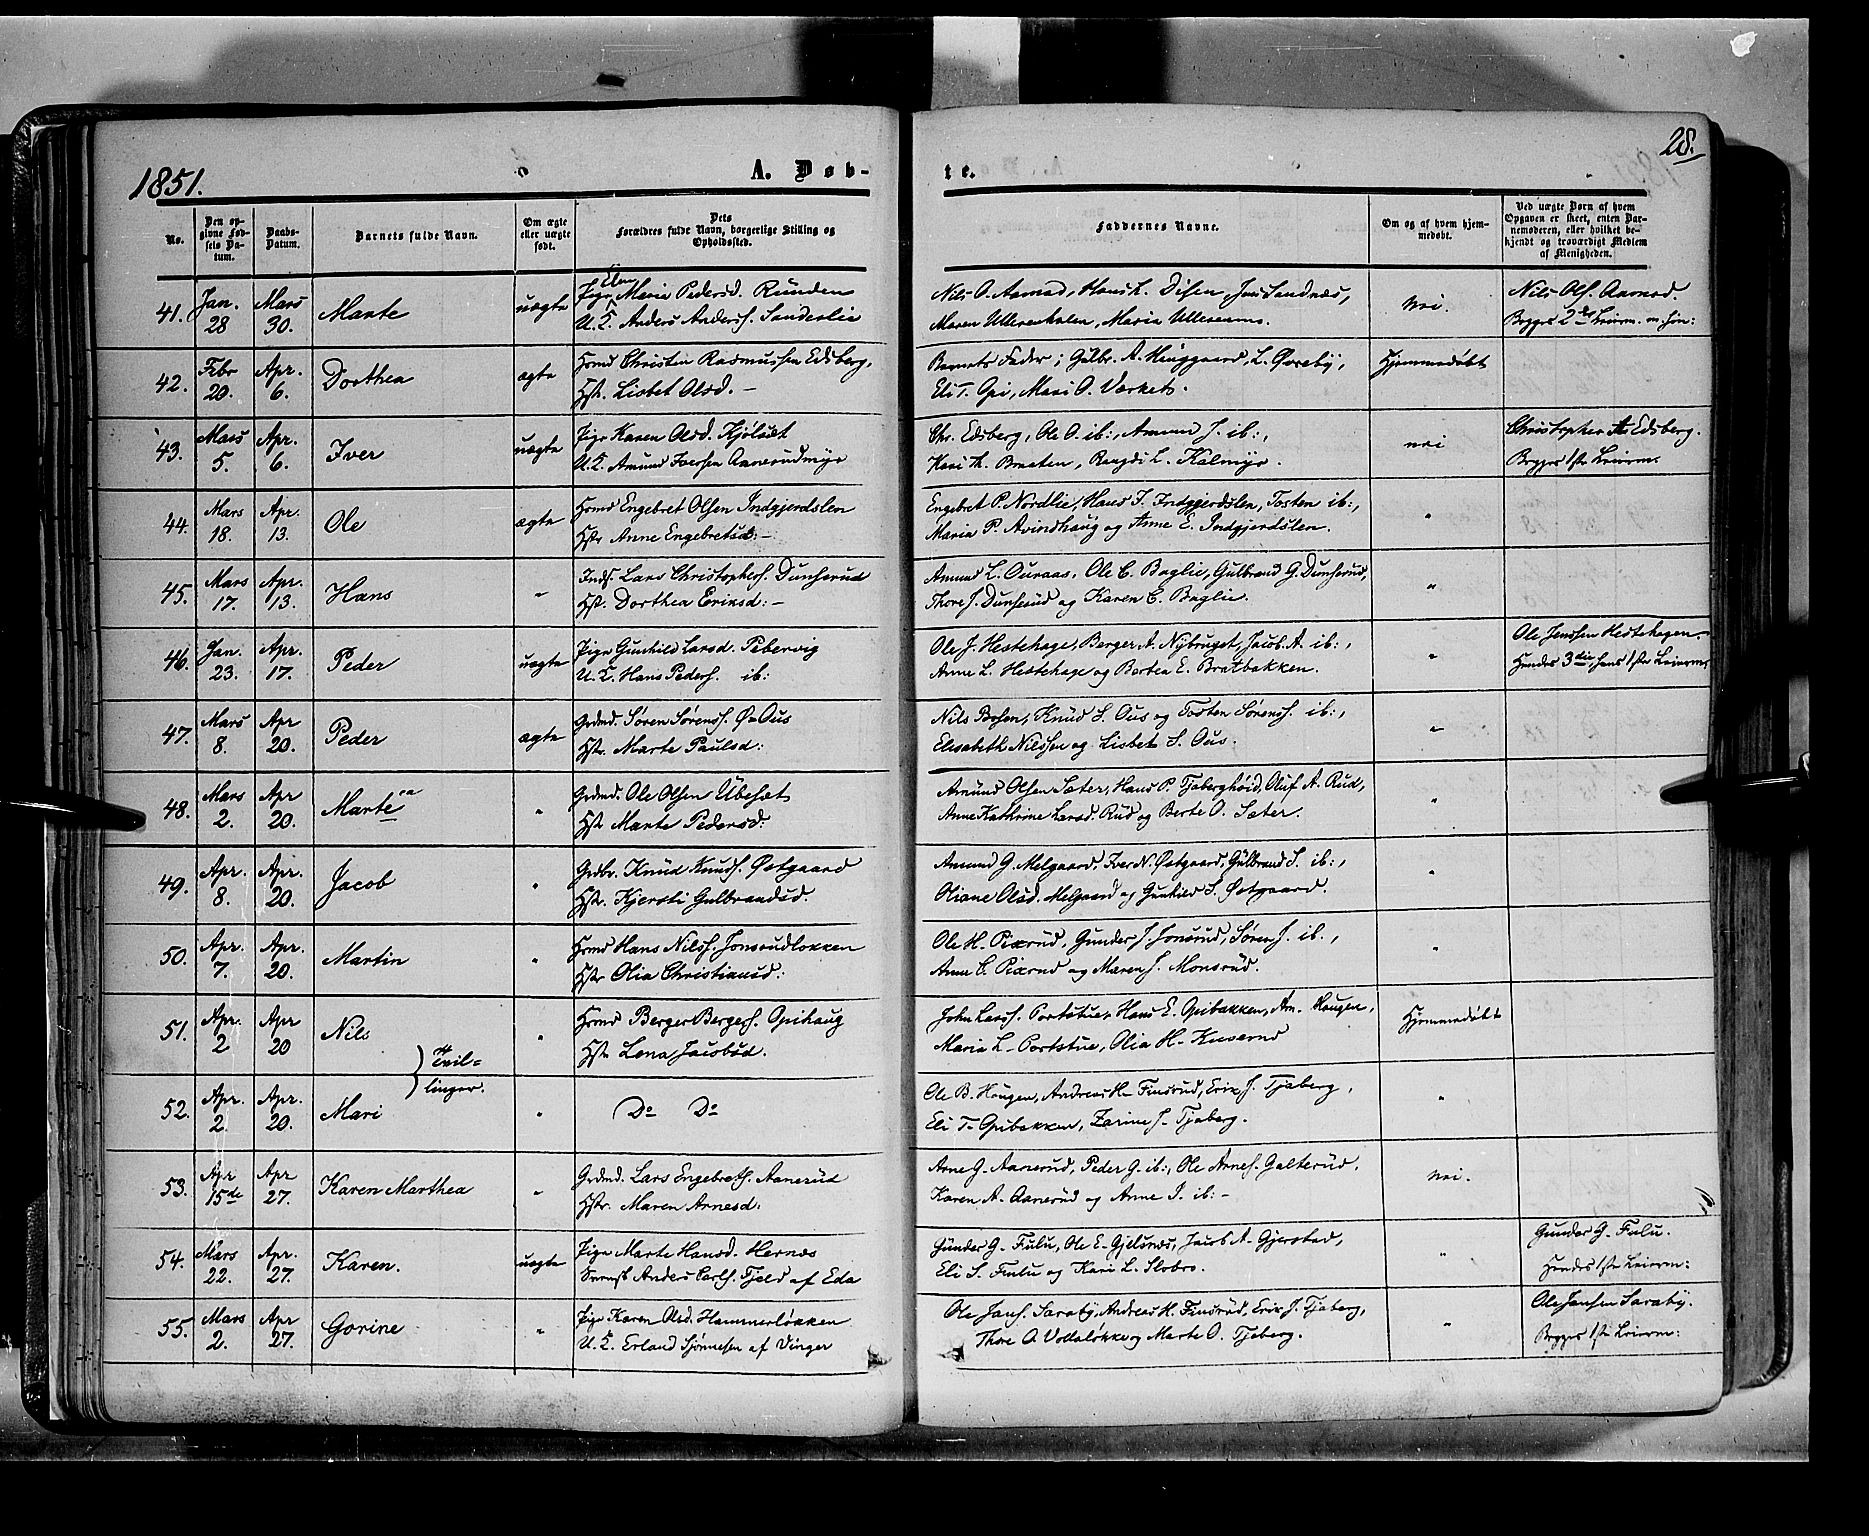 1851.
A. Døb-
te.
28.
No.
Den op-
givne Fød-
sels Da-
tum.
Daabs-
Datum.
Barnets fulde Navn.
Om ægte
eller uægte
født.
Dets
Forældres fulde Navn, borgerlige Stilling og
Opholdssted.
Faddernes Navne.
Om og af hvem hjem-
medøbt.
Ved uægte Børn af hvem
Opgaven er skeet, enten Bar-
nemoderen, eller hvilket be-
kjendt og troværdigt Medlem
af Menigheden.
41. Jan. 28 Mars 30. Marte uægte
Pige Maria Pedersd. Runden
U.K. Anders Anders. Sanderlie
Nils O. Aamod, Hans L. Disen, Jens Sandnæs,
Maren Ullerenhalen, Maria Ullereneie.
nei.
Nils Ols. Aamod.
Begges 2des Leierm.
42. Febr 20. Apr. 6. Dorthea ægte
Hmd Christen Rasmussen Edsberg,
Hstr. Lisbet Olsd. –
Barnets Fader; Gulbr. A. Hinggaard, L. Øvreby,
Eli T. Opi, Mari O. Værkets.
Hjemmedøbt
43. Mars 5. Apr. 6. Iver uægte
Pige Karen Olsd. Kjølset
U.K. Amund Iversen Aanerudmyr
Chr. Edsberg, Ole O. ib:, Amund J. ib:,
Kari H. Braaten, Rangdi L. Kalmyr.
nei
Christopher A. Edsberg.
Begges 1ste Leierm.
44. Mars 18. Apr. 13. Ole ægte
Hmd Engebret Olsen Indgjerdslen
Hstr Anne Engebretsd: –
Engebret P. Nordlie, Hans J. Indgjerdslen, Tosten ib:,
Maria P. Avindhaug og Anne E. Indgjerdslen.
"
45. Mars 17. Apr. 13. Hans "
Inds. Lars Christophers. Dunserud
Hstr. Dorthea Eriksd: –
Amund L. Ouraas, Ole C. Baglie, Gulbrand G. Dunserud,
Thore J. Dunserud og Karen C. Baglie.
"
46. Jan. 23. Apr. 17. Peder uægte
Pige Gunhild Larsd. Pebervig
U.K. Hans Peders. ib:
Ole J. Hestehage, Berger A. Nybruget, Jacob A. ib:,
Anne L. Hestehage og Bertea E. Bratbakken.
"
Ole Jenssen Hestehagen.
Hendes 3die, hans 1ste Leierm.
47. Mars 8. Apr 20. Peder ægte
Grdmd. Søren Sørens. Ø. Ous
Hstr. Marte Paulsd:
Nils Bosen, Knud S. Ous og Tosten Sørens. ib:,
Elisabeth Nilssen og Lisbet S. Ous.
"
48. Mars 2. Apr 20. Martea "
Grdmd. Ole Olsen Ubesæt
Hstr Marte Pedersd:
Amund Olsen Sæter, Hans P. Tjaberghøid, Oluf A. Rud,
Anne Kathrine Larsd. Rud og Berte O. Sæter.
"
49. Apr. 8. Apr. 20. Jacob "
Grdbr. Knud Knuds. Østgaard
Hstr. Kjersti Gulbrandsd.
Amund G. Melgaard, Iver N. Østgaard, Gulbrand S. ib:,
Oliane Olsd. Melgaard og Gunhild S. Østgaard.
"
50. Apr. 7. Apr. 20. Martin "
Hmd Hans Nils. Jonsrudløkken
Hstr Olia Christiansd:
Ole H. Pixrud, Gunder J. Jonsrud, Søren J. ib.,
Anne C. Pixrud og Maren J. Monsrud.
"
51. Apr. 2 Apr 20 Nils "
Hmd Berger Bergers. Opihaug
Hstr. Lena Jacobsd.
John Larss. Portstue, Hans E. Opibakken, Am. Haugen,
Maria L. Portstue, Olia H. Kuserud
Hjemmedøbt
Tvil-
linger.
52. Apr. 2. Apr. 20. Mari "
Do Do
Ole B. Haugen, Andreas H. Finsrud, Erik J. Tjaberg,
Eli T. Opibakken, Karine J. Tjaberg.
"
53. Apr 15de Apr 27. Karen Marthea "
Grdmd. Lars Engebreths. Aanerud
Hstr. Maren Arnesd:
Arne G. Aanerud, Peder G. ib:, Ole Arnes. Galterud,
Karen A. Aanerud og Anne J. ib: –
nei.
54. Mars 22. Apr. 27. Karen. uægte
Pige Marte Hansd. Hernæs
Svensk Anders Carls. Tjeld af Eda
Gunder G. Fulu, Ole E. Gjelsnæs, Jacob A. Gjerstad,
Eli S. Fulu og Kari L. Slobro.
"
Gunder G. Fulu.
Hendes 1ste Leierm:
55. Mars 2. Apr 27. Gorine "
Pige Karen Olsd. Hammerløkken
U.K. Erland Sjønnesen af Vinger
Ole Jans. Saraby, Andreas H. Finsrud, Erik J. Tjaberg,
Thore A. Voldaløkke og Marte O. Tjaberg.
"
Ole Jansen Saraby.
Begges 1ste Leierm: